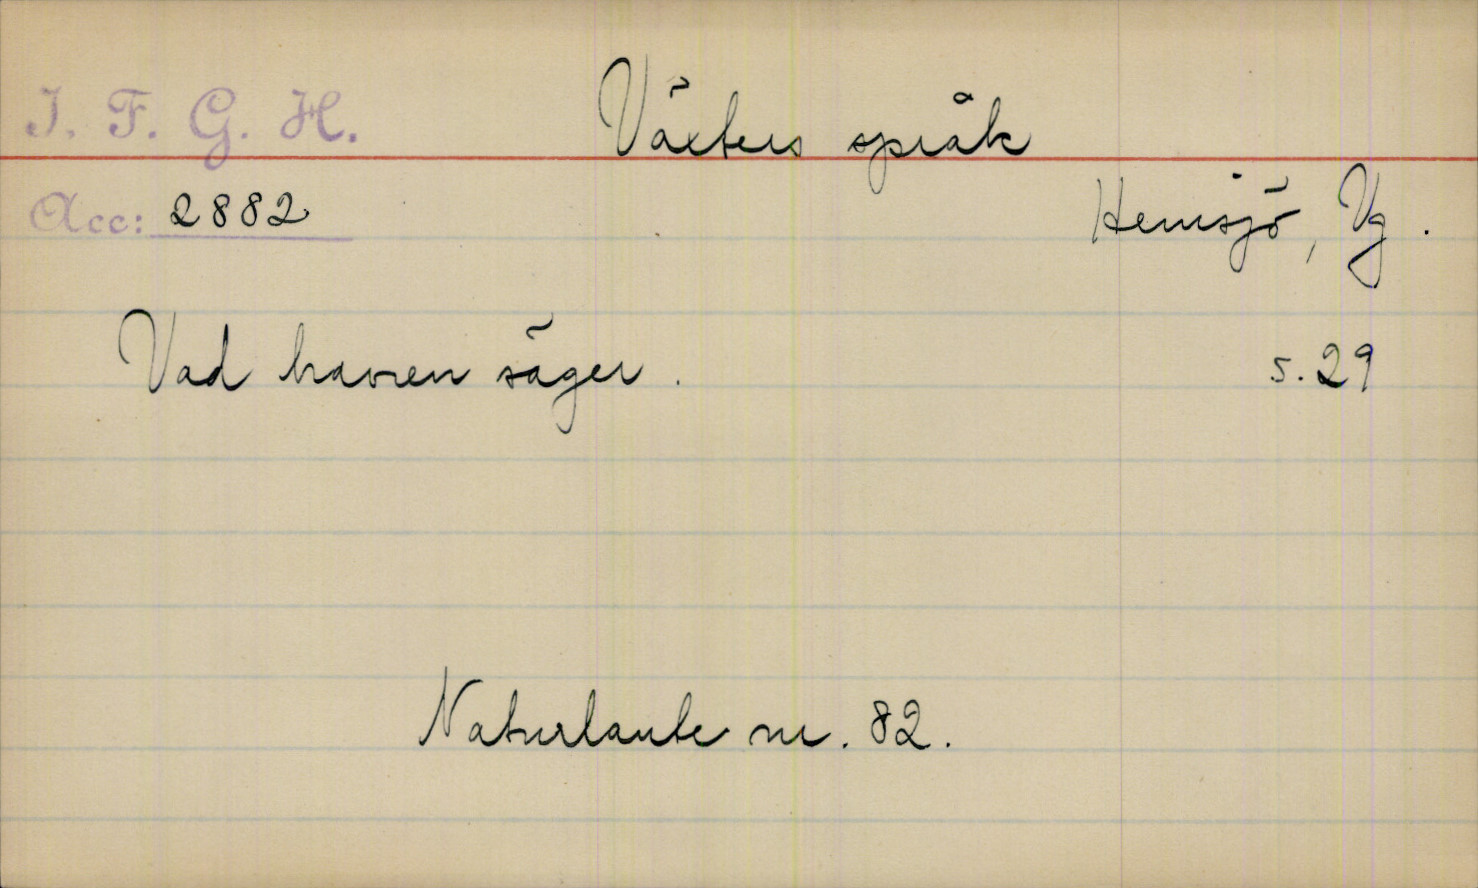 I. F. G. H.
Växters språk
Acc: 2882
Hemsjö, Vg.
Vad havren säger.
s. 29
Naturlaute nr. 82.